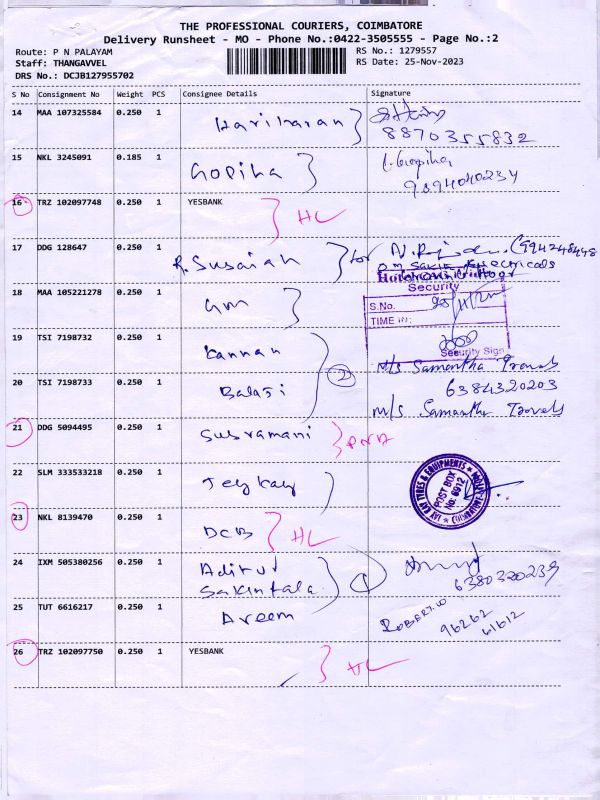 THE PROFESSIONAL COURIERS, COIMBATORE
Delivery Runsheet - MO - Phone No.:0422-3505555 - Page No.:2
Route: P N PALAYAM
RS No.: 1279557
Staff: THANGAVVEL
RS Date: 25-Nov-2023
DRS No.: DCJB127955702
S No Consignment No Weight PCS Consignee Details Signature
14 MAA 107325584 0.250 1 Hariharan
8870355832
15 NKL 3245091 0.185 1 Gopiha
Gopiha
9894040234
16 TRZ 102097748 0.250 1 YESBANK
HL
17 DDG 128647 0.250 1 R. Susaiah for
18 MAA 105221278 0.250 1 Gm
Security
S.No.
TIME IN:
Security Sign
19 TSI 7198732 0.250 1 Kannan
M/s Samantha Travels
20 TSI 7198733 0.250 1 Balaji 2
6384320203
M/s Samantha Travels
21 DDG 5094495 0.250 1 Subramani
22 SLM 333533218 0.250 1 Jey kay
POST BOX
No: 6912
23 NKL 8139470 0.250 1 DCB HL
24 IXM 505380256 0.250 1
Sakintala 1
6380320239
25 TUT 6616217 0.250 1 Areem
ROBERT.W
96262
61612
26 TRZ 102097750 0.250 1 YESBANK
HL